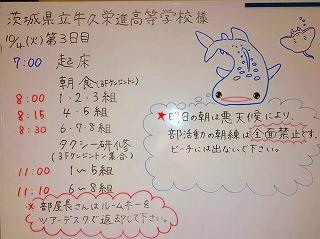 茨城県立牛久栄進高等学校様
10/4(火) 第3日目
7:00 起床
朝食(3Fケンジントン)
8:00 1・2・3組
8:15 4・5組
8:30 6・7・8組
タクシー研修
(3Fケンジントン集合)
11:00 1〜5組
11:10 6〜8組
※部屋長さんはルームキーを
ツアーデスクで返却して下さい。
★明日の朝は悪天候により、
部活動の朝練は全面禁止です。
ビーチには出ないで下さい。